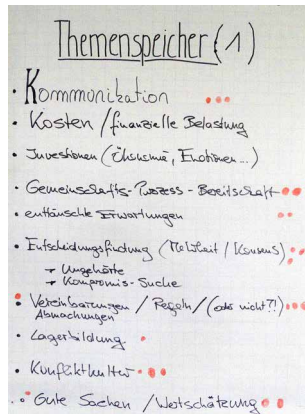 Themenspeicher (1)
• Kommunikation
• Kosten / finanzielle Belastung
• Investionen (Ökonomie, Emotionen...)
• Gemeinschafts-Prozess-Bereitschaft
• enttäuschte Erwartungen
• Entscheidungsfindung (Mehrheit / Konsens)
→ Ungehörte
→ Kompromis-Suche
• Vereinbarungen / Regeln / (oder nicht?!)
Abmachungen
• Lagerbildung
• Konfliktkultur
• Gute Sachen / Wertschätzung